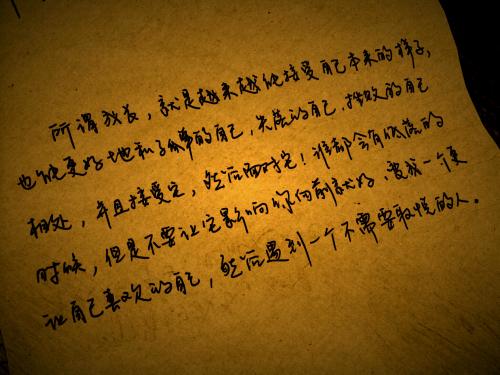 所谓成长，就是越来越能接受自己本来的样子，
也能更好地和孤单的自己，失落的自己，挫败的自己
相处，并且接受它，然后面对它！谁都会有低落的
时候，但是不要让它影响你向前就好，变成一个更
让自己喜欢的自己，然后遇到一个不需要取悦的人。